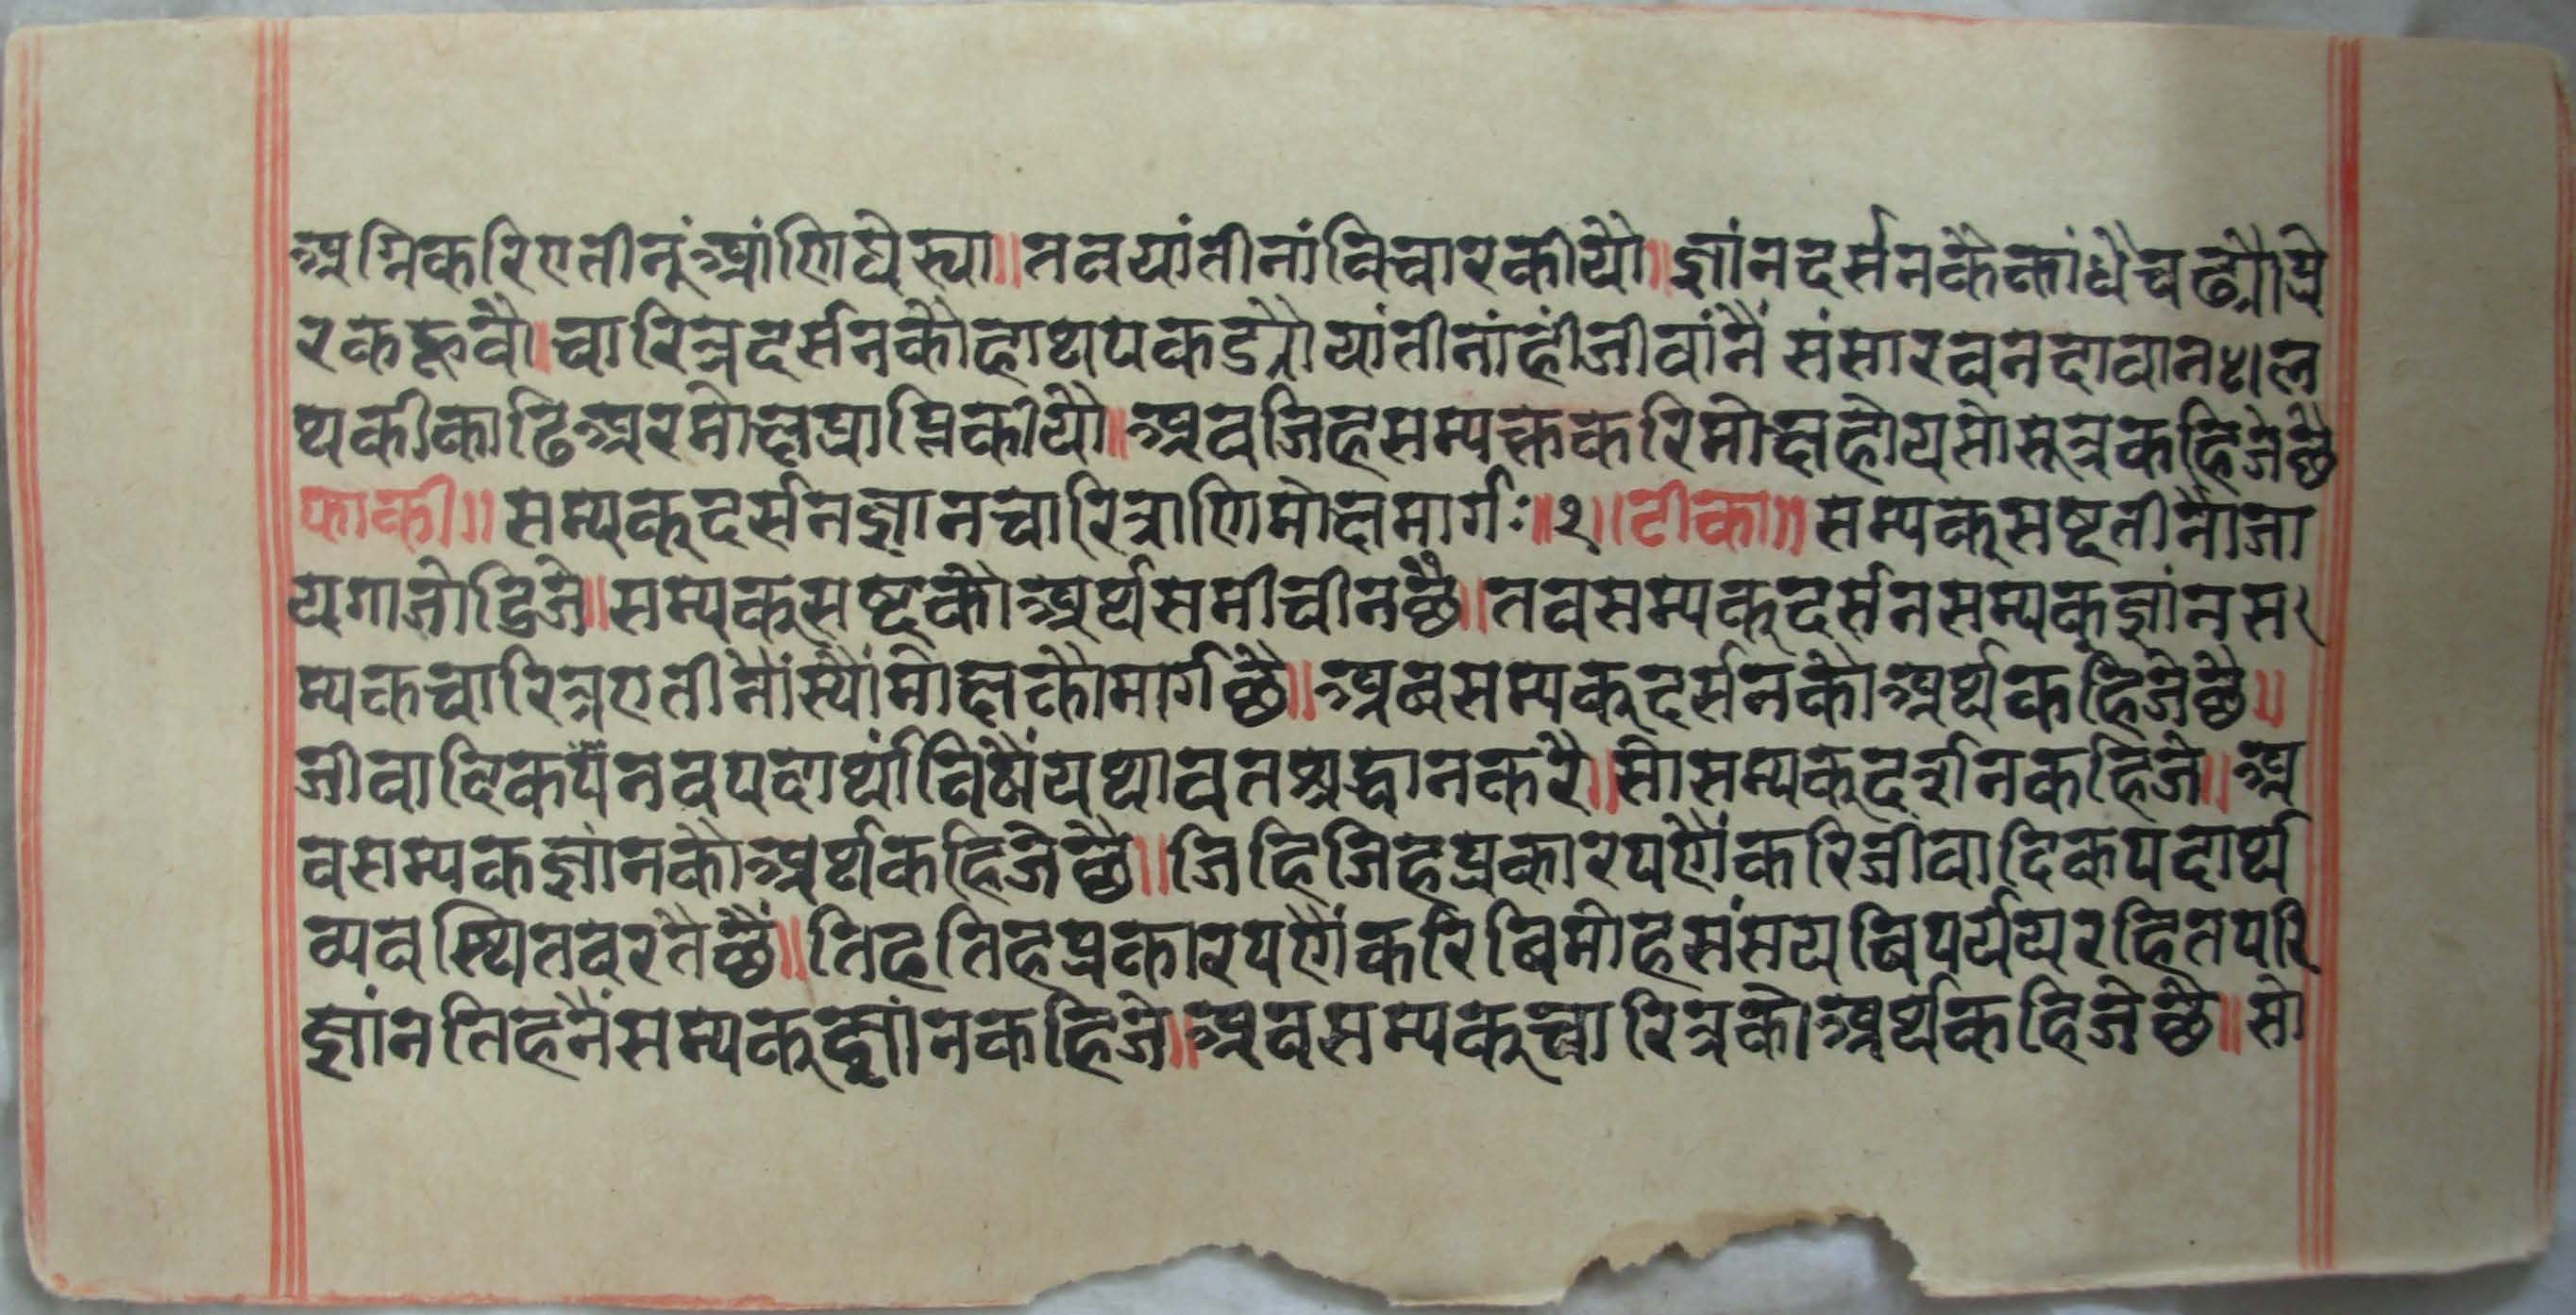 अग्निकरिएतीनुंआंणिघेस्या॥तबयांतीनांबिचारकीयौ॥ज्ञांनदर्सनकैकांधैचढ्यौ।प्रे
रकहूवौ।चारित्रदर्सनकौहाथपकड्यौयांतीनांहींजीवांनैंसंसारबनदावान८।ल
थकीकाढिअरमोक्षप्राप्तिकीयौ॥अबजिहसम्यक्तकरिमोक्षहोयसोसूत्रकहिजेछै
फाकी॥सम्यक्दर्सनज्ञानचारित्राणिमोक्षमार्गः॥१॥टीका॥सम्यक्सष्टतीनौंजा
यगाजोडिजे॥सम्यक्सष्टकौअर्थसमीचीनछै॥तबसम्यक्दर्सनसम्यक्ज्ञांनस
म्यकचारित्रएतीनौंस्यौंमोक्षकौमार्गछै॥अबसम्यक्दर्सनकौअर्थकहिजेछै॥
जीवादिकपैंनवपदार्थांविषैंयथावतश्रद्धानकरै॥सोसम्यक्दर्शनकहिजे॥अ
बसम्यकज्ञांनकौअर्थकहिजेछै॥जिहिजिहप्रकारपणैंकरिजीवादिकपदार्थ
व्यवस्थितबरतैछैं॥तिहतिहप्रकारपणैंकरिबिमोहसंसयबिपर्ययरहितपरि
ज्ञांनतिहनैंसम्यक्ज्ञांनकहिजे॥अबसम्यक्चारित्रकोअर्थकहिजेछै॥सो